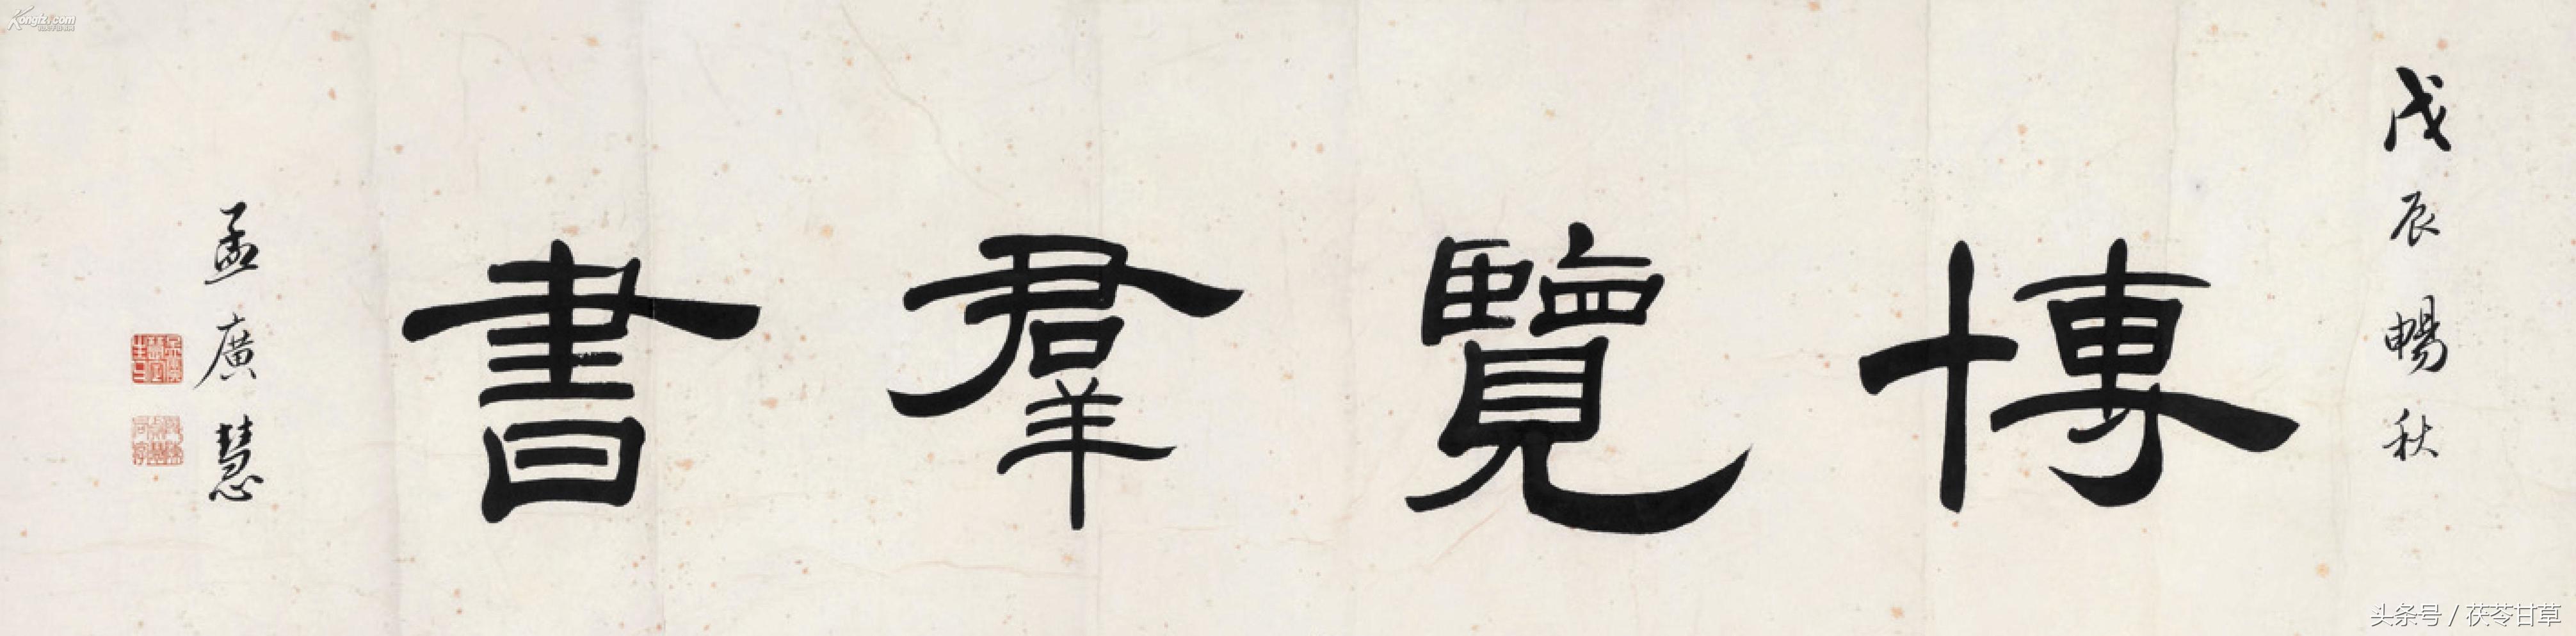 戊辰暢秋
博覽羣書
孟廣慧
Kongfz.com
头条号 / 茯苓甘草